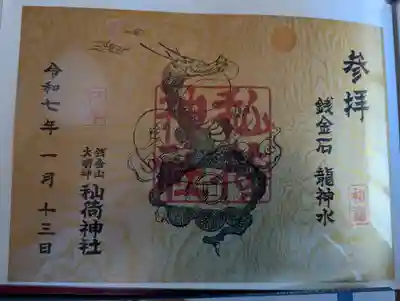 参拝
銭金石 龍神水
銭金山
大明神
秈荷神社
令和七年 一月 十三日